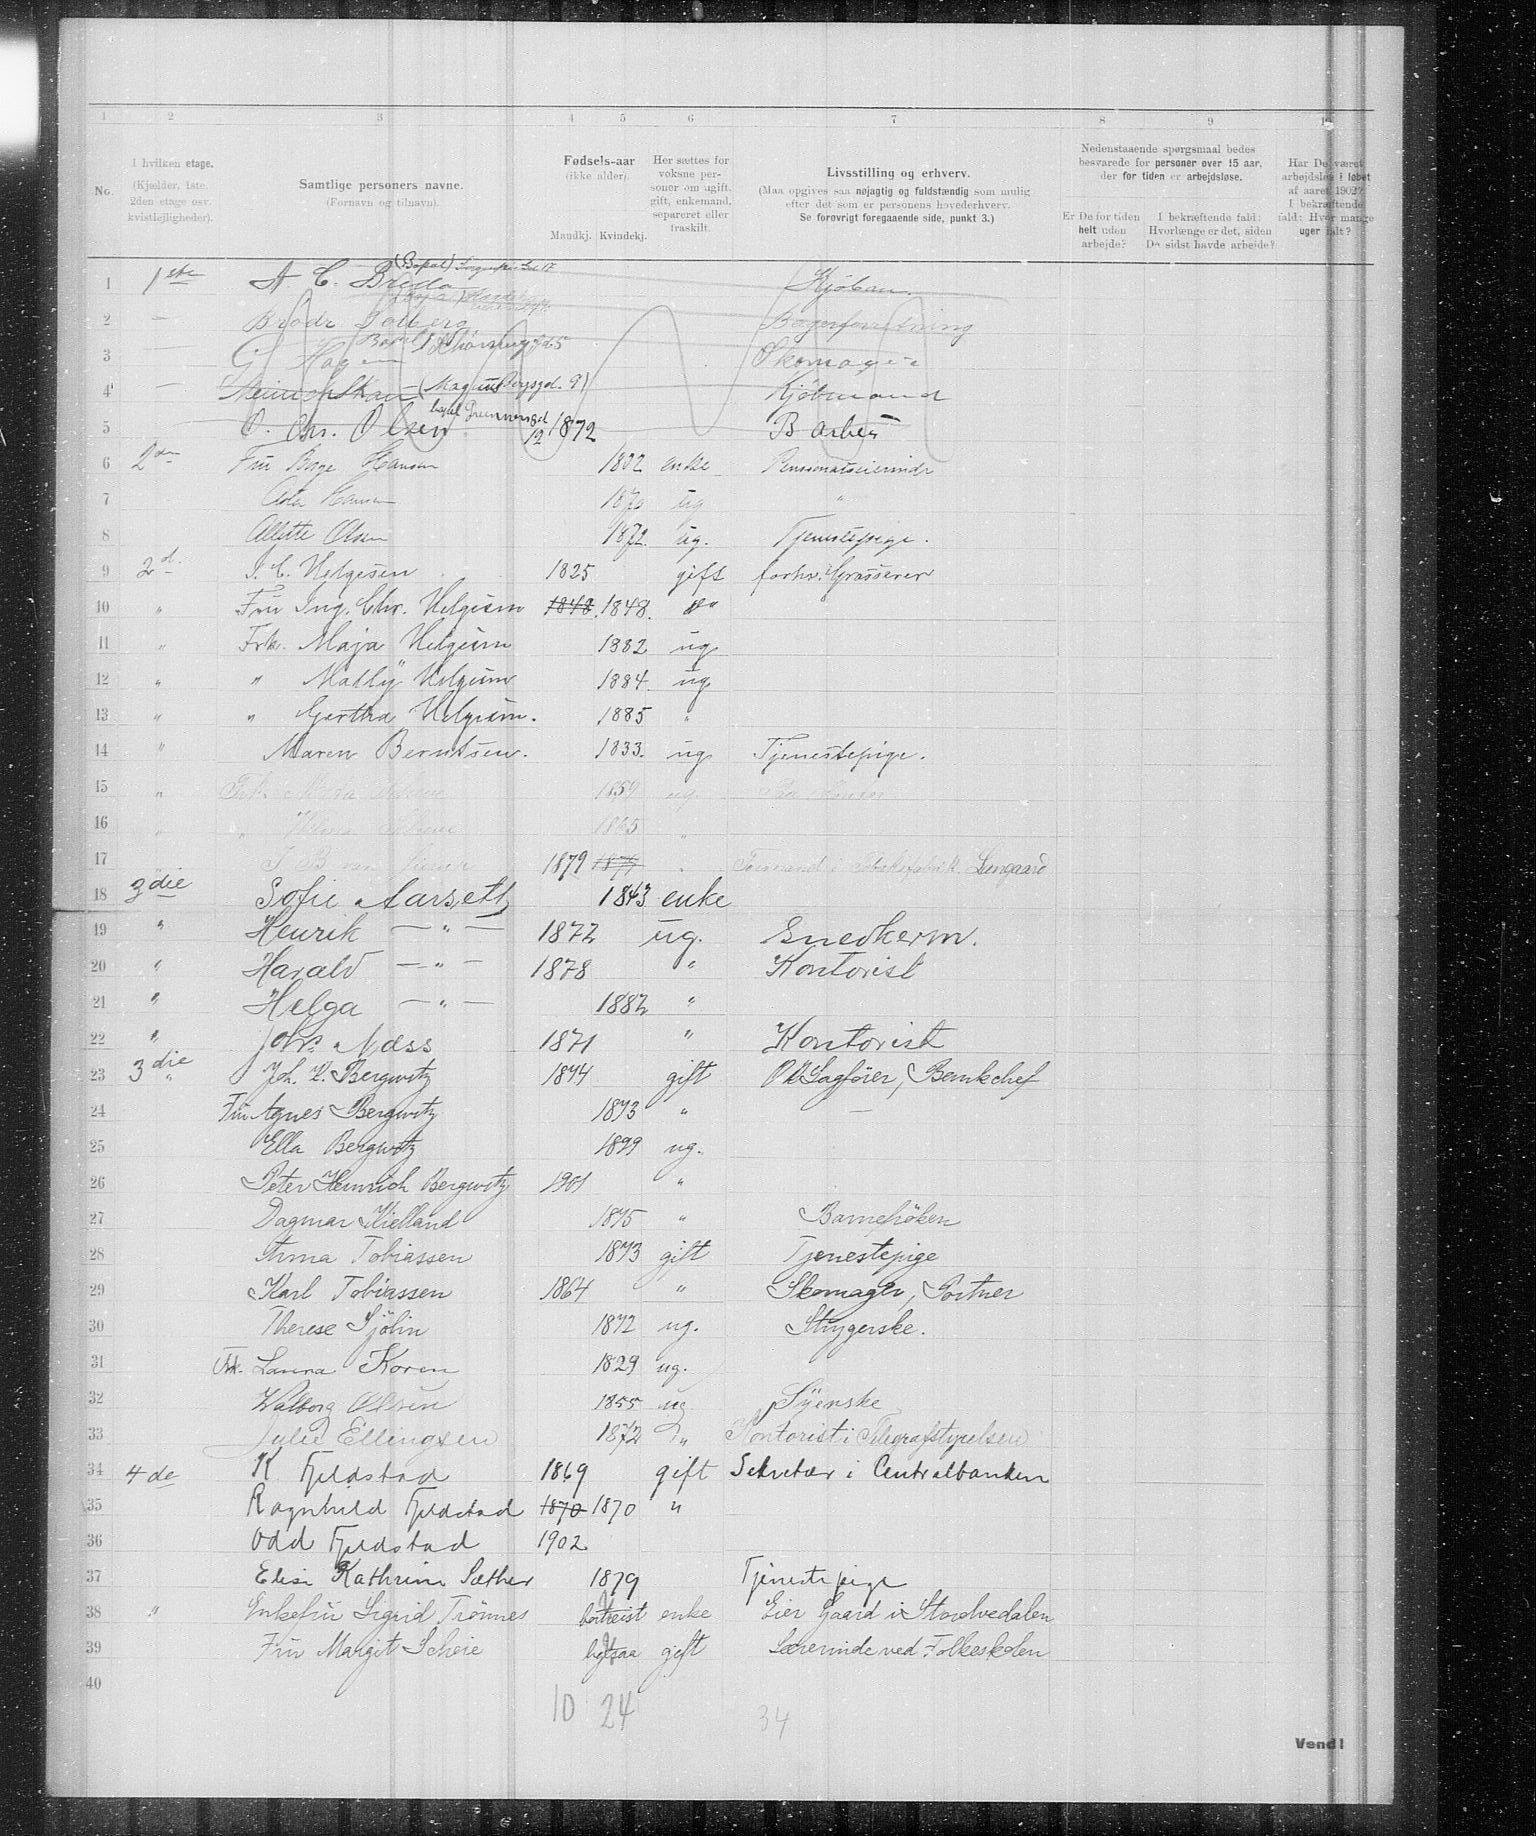 1 2 3 4 5 6 7 8 9 10
No.
I hvilken etage.
(Kjælder, 1ste, 2den etage osv. kvistlejligheder).
Samtlige personers navne.
(Fornavn og tilnavn).
Fødsels-aar
(ikke alder).
Mandkj. Kvindekj.
Her sættes for voksne personer om ugift, gift, enkemand, separeret eller fraskilt.
Livsstilling og erhverv.
(Maa opgives saa nøjagtig og fuldstændig som mulig efter det som er personens hovederhverv.
Se forøvrigt foregaaende side, punkt 3.)
Nedenstaaende spørgsmaal bedes besvarede for personer over 15 aar, der for tiden er arbejdsløse.
Er De for tiden helt uden arbejde?
I bekræftende fald: Hvorlænge er det, siden De sidst havde arbejde?
Har De været arbejdsløs i løbet af aaret 1902? I bekræftende fald: Hvor mange uger ialt?
1 1ste A C. Breda (Bopal) Kjøbm.
2 — Brødr. Solberg Bagerforretning
3 G. Hagen Bopal Skomager
4 — (Magnus Bergsgd. 9) Kjøbmand
5 O. Chr. Olsen bopal 12 1872 Barber
6 2den Fru Hansen 1832 enke Pensionatseierinde
7 Hansen ug "
8 Olsen 1872. ug. Tjenestepige.
9 2d. I. C. Helgesen 1825 gift forhv. Grosserer
10 " Fru Ing. Chr. Helgesen 1848. 1848. "
11 " Frk. Maja Helgesen 1882 ug
12 " " Mally Helgesen 1884. ug
13 " " Gertha Helgesen. 1885 "
14 " Maren Berntsen. 1833. ug Tjenestepige.
15 " Frk. 1859 ug.
16 " " 1865 "
17 1879 1879 " Formand i Tobaksfabrik. Langaard
18 3die Sofie Aarseth 1843 enke
19 " Henrik — " — 1872 ug. Snedkerm.
20 " Harald — " — 1878 " Kontorist
21 " Helga — " — 1882 "
22 " Johs. Næss 1871 " Kontorist
23 3die " Joh. P. Bergwitz 1874 gift O.R.Sagfører, Bankchef
24 Fru Agnes Bergwitz 1873 " —
25 Ella Bergwitz 1899 ug.
26 Peter Heinrich Bergwitz 1901 "
27 Dagmar Kielland 1875 " Barnefrøken
28 Anna Tobiassen 1873 gift Tjenestepige
29 Karl Tobiassen 1864 " Skomager, Portner
30 Therese Sjölin 1872 ug. Strygerske.
31 Frk. Laura Koren 1829 ug.
32 Walborg Olsen 1855 ug Syerske
33 Julie Ellingsen 1872 " Kontorist i Telegrafstyrelsen
34 4de K. Fjeldstad 1869 gift Sekretær i Centralbanken
35 Ragnhild Fjeldstad 1870 1870 "
36 Odd Fjeldstad 1902
37 Elise Kathrine Sæther 1879 Tjenestepige
38 " Enkefru Sigrid Trønnes bortreist enke Eier Gaard i Storelvedalen
39 Fru Margit Scheie ligesaa gift Lærerinde ved Folkeskolen
40
10 24 34
Vend!